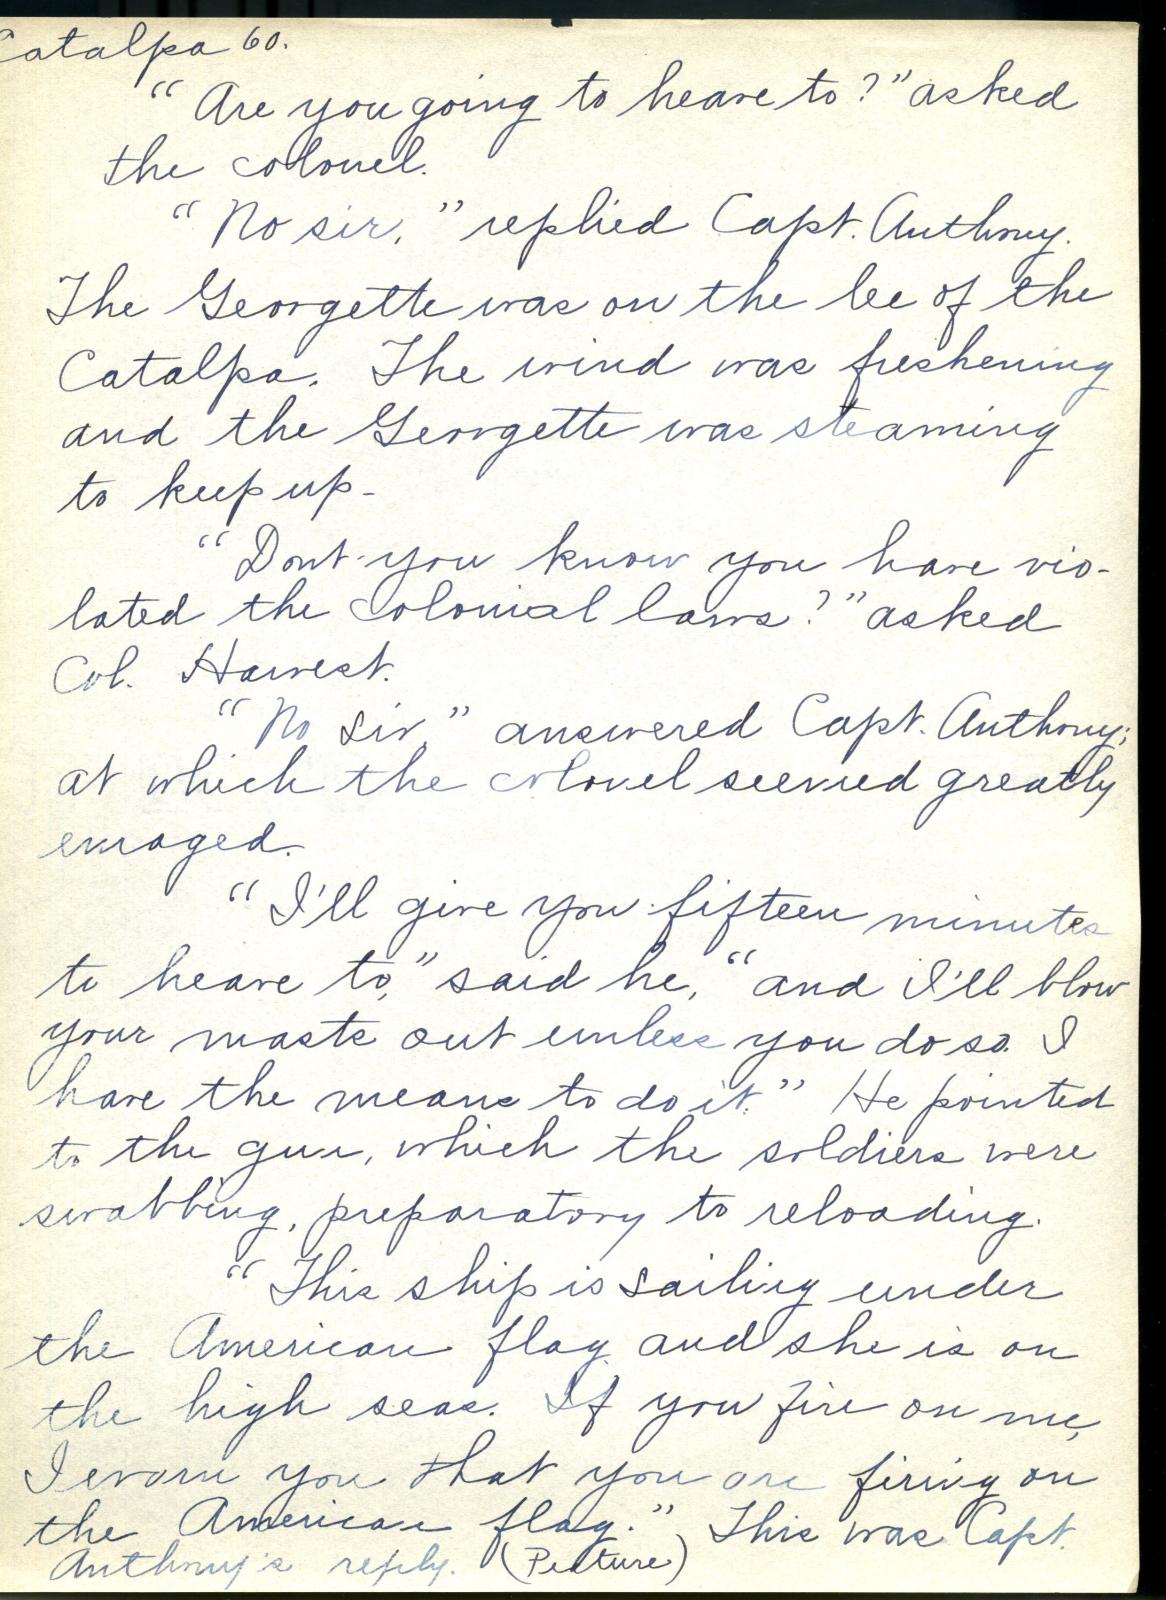 Catalpa 60.
"Are you going to heave to?" asked
the colonel.
"No sir," replied Capt. Anthony.
The Georgette was on the lee of the
Catalpa. The wind was freshening
and the Georgette was steaming
to keep up-
"Dont you know you have vio-
lated the colonial laws?" asked
Col. Harvest.
"No sir" answered Capt. Anthony;
at which the colonel seemed greatly
enraged.
"I'll give you fifteen minutes
to heave to," said he, "and I'll blow
your masts out unless you do so. I
have the means to do it." He pointed
to the gun, which the soldiers were
swabbing, preparatory to reloading.
"This ship is sailing under
the American flag and she is on
the high seas. If you fire on me,
I warn you that you are firing on
the American flag." This was Capt.
Anthony's reply. (Picture)